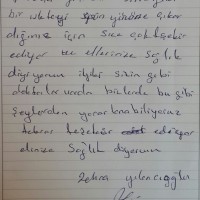 bir isteği için yönüze çıkar
dığınız için size çok teşekür
ediyor ve ellerinize sağlık
diyorum iyiki sizin gibi
doktorlar var da bizlerde bu gibi
şeylerden yararlanabiliyoruz
tekrar teşekür ediyor
elinize sağlık diyorum